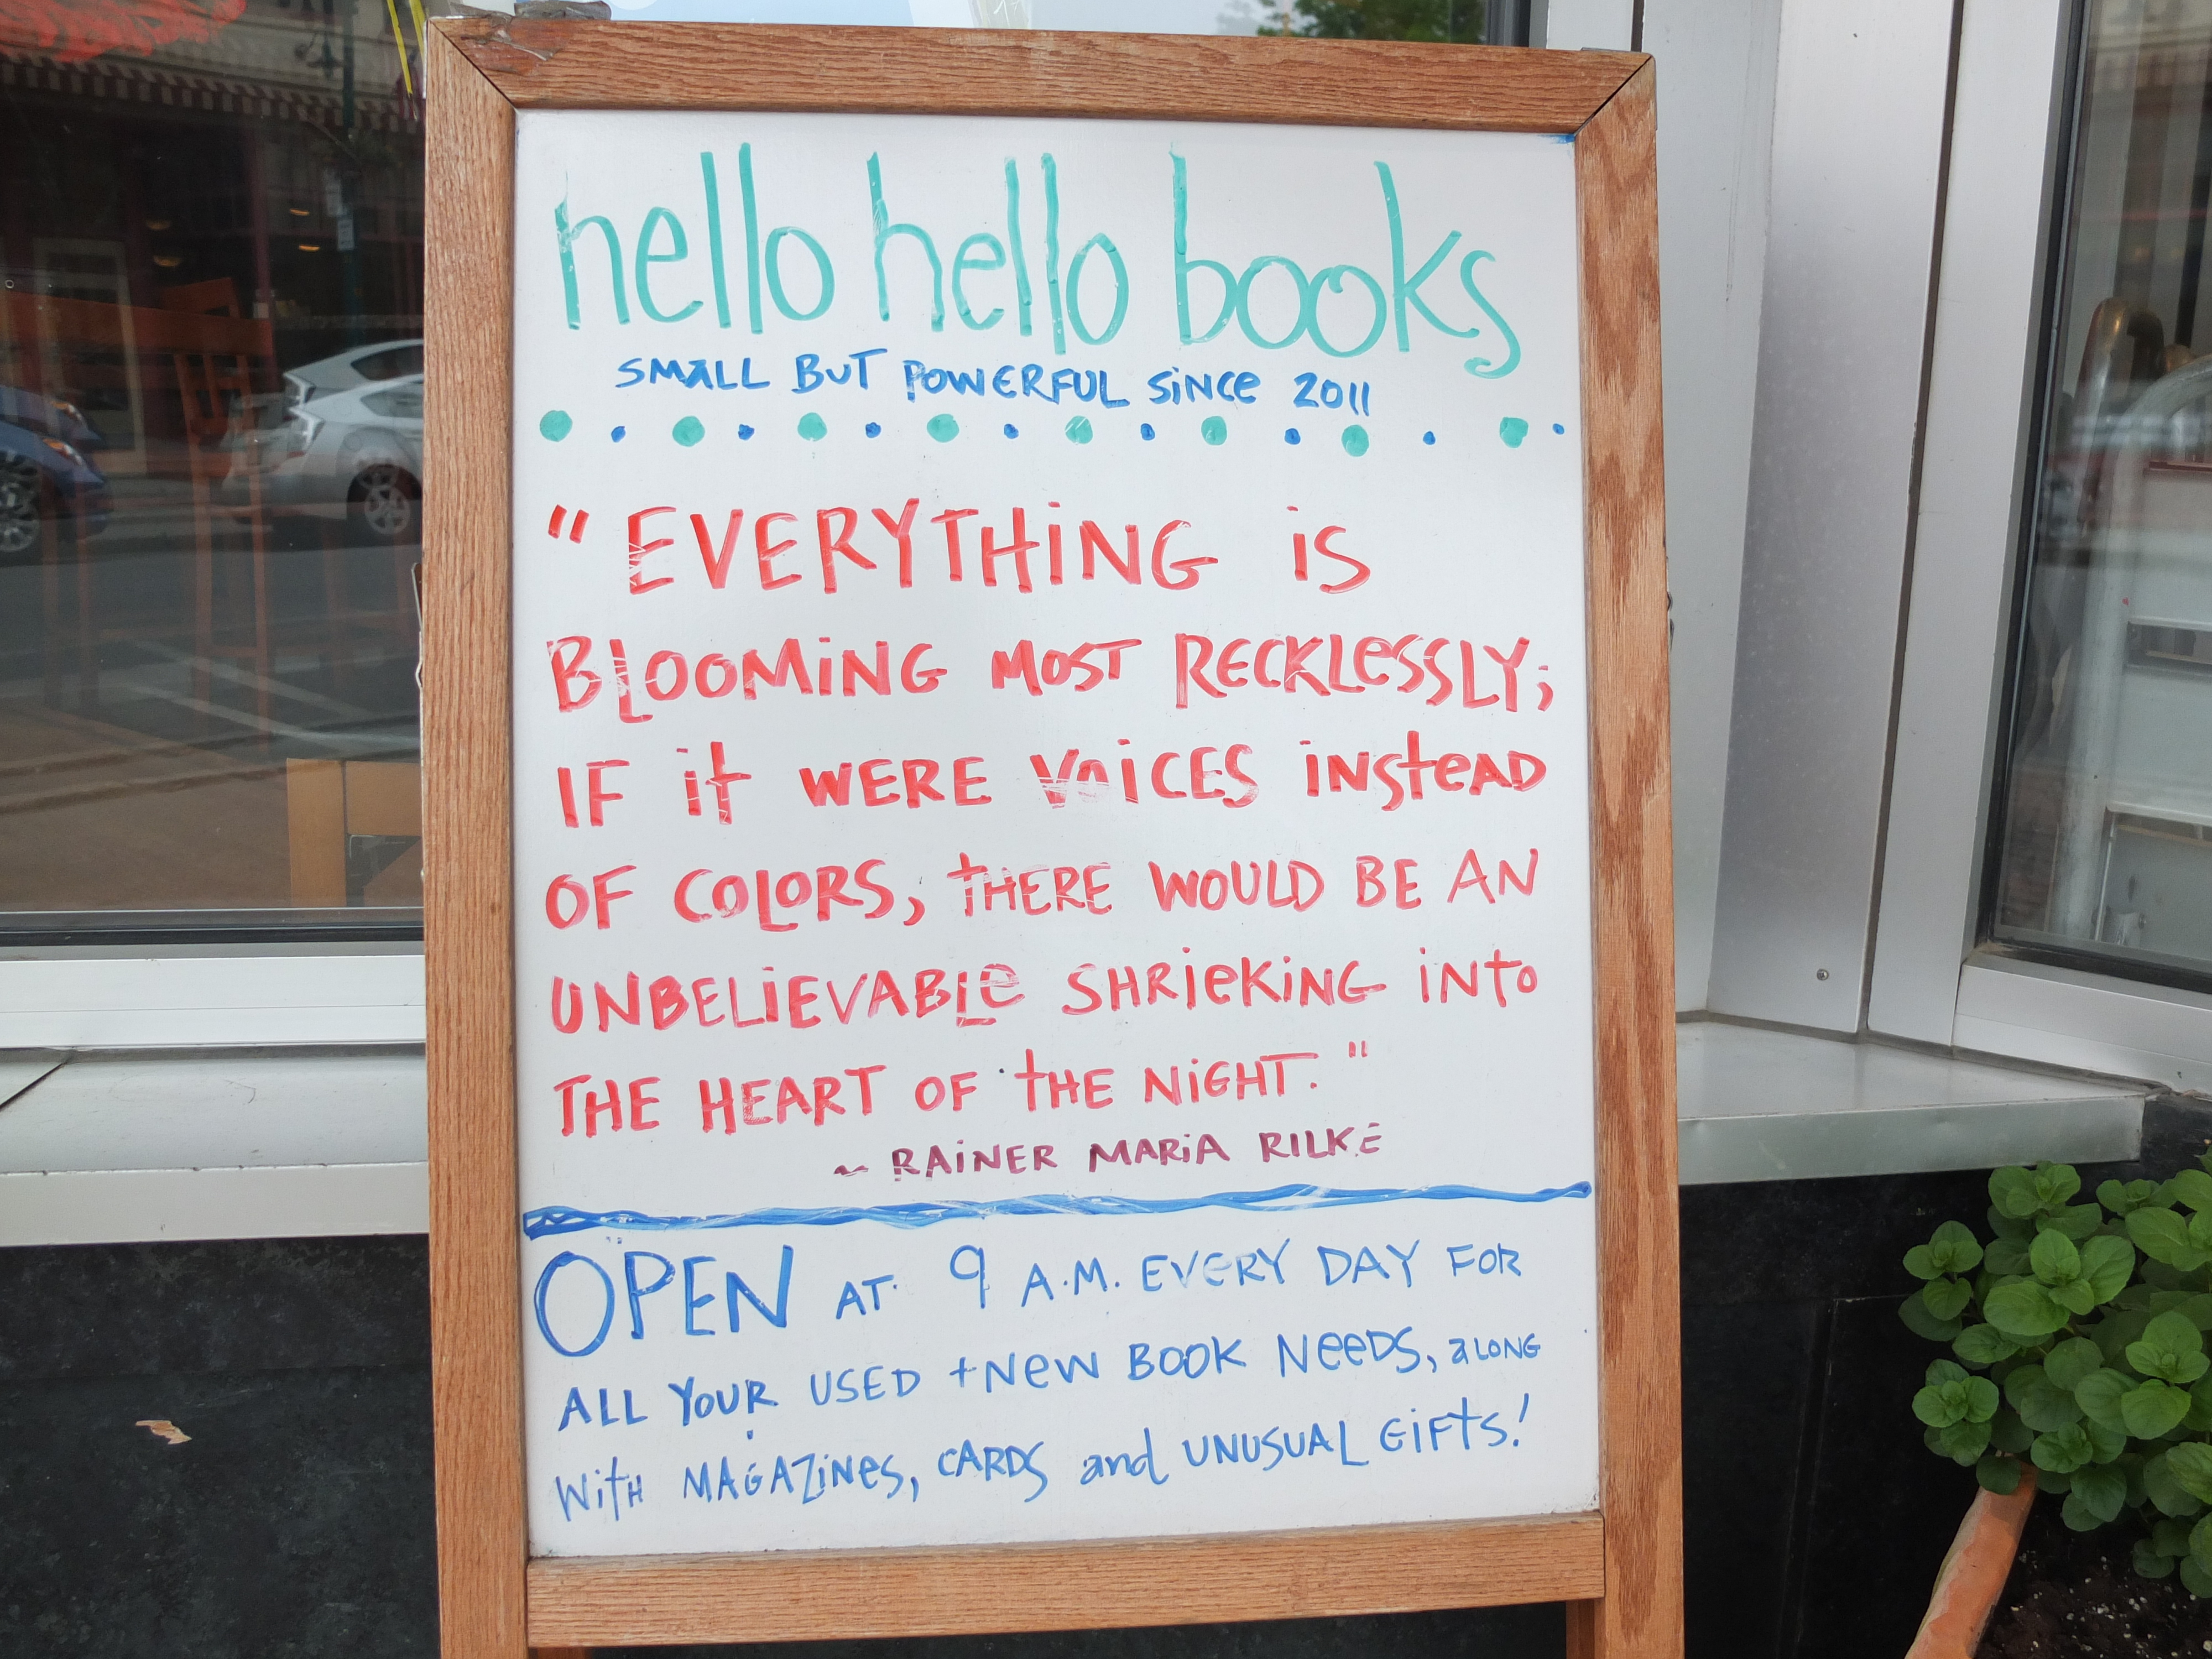 hello hello books
SMALL BUT POWERFUL SINCE 2011
"EVERYTHING iS
BLOOMING MOST RECKLESSLY;
IF it WERE VOICES INSTEAD
OF COLORS, THERE WOULD BE AN
UNBELIEVABLE SHRIEKING INTO
THE HEART OF THE NIGHT."
~ RAINER MARIA RILKE
OPEN AT 9 A.M. EVERY DAY FOR
ALL YOUR USED + NEW BOOK NEEDS, ALONG
WITH MAGAZINES, CARDS and UNUSUAL GIFTS!